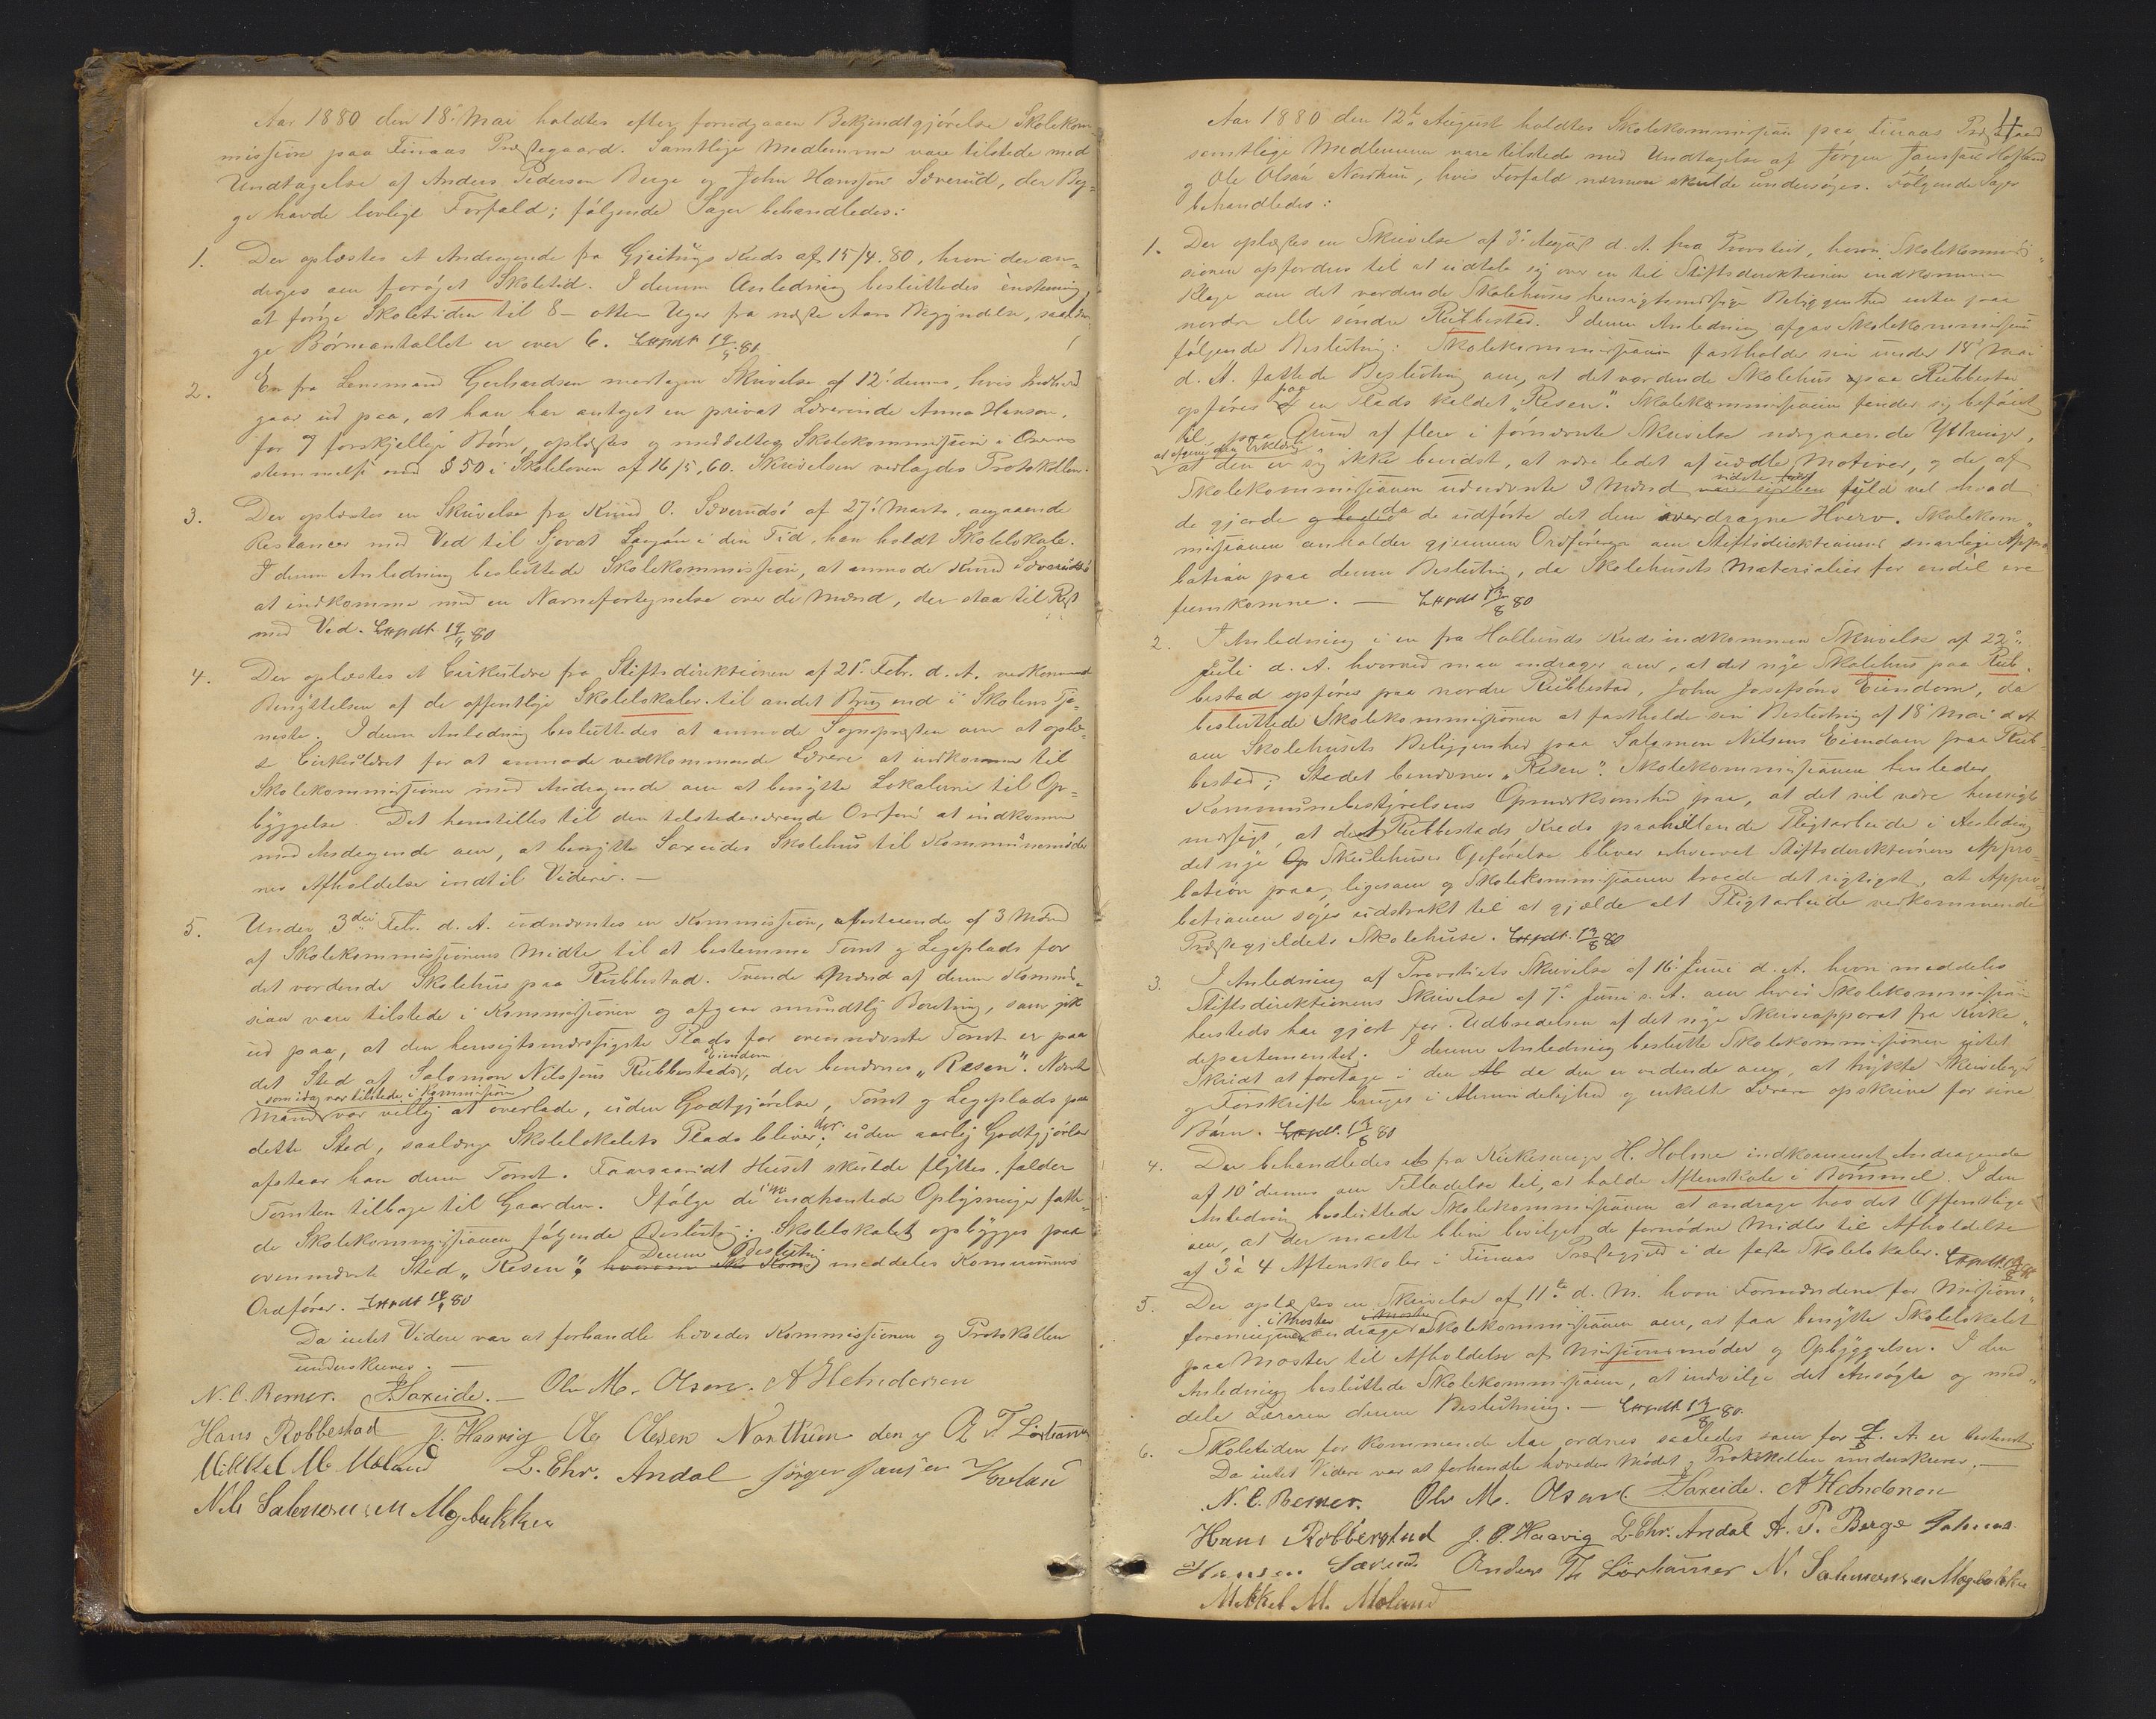 Aar 1880 den 18. Mai holdtes efter forudgaaen Bekjendtgjørelse Skolekom-
mission paa Finaas Præstegaard. Samtlige Medlemmer vare tilstede med
Undtagelse af Anders Pedersen Berge og John Hanssen Søverud, der Beg-
ge havde lovligt Forfald; følgende Sager behandledes:
1. Der oplæstes et Andragende fra Gjeitungs Kreds af 15/4.80, hvori der an-
drages om forøget Skoletid. I denne Anledning besluttedes enstemmig,
at forøge Skoletiden til 8 - otte - Uger fra næste Aars Begyndelse, saalæn-
ge Børneantallet er over 6. Expdt 19/5 80
2. En fra Lensmand Gerhardsen modtagen Skrivelse af 12' dennes, hvis Indhold
gaar ud paa, at han har antaget en privat Lærerinde Anna Hansen,
for 7 forskjellige Børn, oplæstes og meddeltes Skolekommissionen i Overens-
stemmelse med § 50 i Skoleloven af 16/5, 60. Skrivelsen vedlagdes Protokollen.
3. Der oplæstes en Skrivelse fra Knud O. Søverudsø af 27' Marts, angaaende
Restancer med Ved til Sjovat i den Tid, han holdt Skolelokale.
I denne Anledning besluttede Skolekommission, at anmode Knud Søverudsø
at indkomme med en Navnefortegnelse over de Mænd, der staa til Rest
med Ved. Expdt. 19/5 80
4. Der oplæstes et Cirkulære fra Stiftsdirektionen af 21' Febr. d. A. vedkommende
Benyttelsen af de offentlige Skolelokaler til andet Brug end i Skolens Tje-
neste. I denne Anledning besluttedes at anmode Sognepræsten om at oplæ-
se Cirkulæret for at anmode vedkommende Lærere at indkomme til
Skolekommissionen med Andragende om at benytte Lokalerne til Op-
byggelse. Det henstilles til den tilstedeværende Ordfører at indkomme
med Andragende om, at benytte Saxeides Skolehus til Kommunemøder-
nes Afholdelse indtil Videre. —
5. Under 3die Febr. d. A. udnævntes en Kommission, bestaaende af 3 Mænd
af Skolekommissionens Midte til at bestemme Tomt og Legeplads for
det vordende Skolehus paa Rubbestad. Tvende Mænd af denne Kommis-
sion vare tilstede i Kommissionen og afgave mundtlig Beretning, som gik
ud paa, at den hensigtsmæssigste Plads for ovennævnte Tomt er paa
det Sted af Salomon Nilssens Rubbestads Eiendom, der benævnes „Resen". Nævnte
Mand som idag var tilstede i Kommission var villig at overlade, uden Godtgjørelse, Tomt og Legeplads paa
dette Sted, saalænge Skolelokalets Plads bliver der; uden aarlig Godtgjørelse
afstaar han denne Tomt. Faarsaavidt Huset skulde flyttes, falder
Tomten tilbage til Gaarden. Ifølge de indhentede Oplysninger fatte-
de Skolekommissionen følgende Beslutning: Skolelokalet opbygges paa
ovennævnte Sted „Resen". Denne Beslutning meddeles Kommunens
Ordfører. Expdt 19/5 80
Da intet Videre var at forhandle hævedes Kommissionen og Protokollen
underskreves. —
N. C. Berner. J. Saxeide. — Ole M. Olsen. A Helvidersen
Hans Robbestad J. Haavig Ole Olesen Northun den y A T Lørhammer
Mikkel M. Moland L. Chr. Andal Jørgen Jansen Hovland
Nils Salomonsen Mogbukken
4
Aar 1880 den 12te August holdtes Skolekommission paa Finaas Præstegaard
samtlige Medlemmer vare tilstede med Undtagelse af Jørgen Janssen Hofland
og Ole Olsen Northun, hvis Forfald nærmere skulde undersøges. Følgende Sager
behandledes:
1. Der oplæstes en Skrivelse af 3' August d. A. fra Provstiet, hvori Skolekommis-
sionen opfordres til at udtale sig over en til Stiftsdirektionen indkommen
Klage om det vordende Skolehuses hensigtsmæssige Beliggenhed enten paa
nordre eller søndre Rubbestad. I denne Anledning afgav Skolekommissionen
følgende Beslutning: Skolekommissionen fastholder sin under 18' Mai
d. A. fattede Beslutning om, at det vordende Skolehus paa Rubbestad
opføres paa en Plads kaldet „Resen". Skolekommissionen finder sig beføiet
til, paa Grund af flere i førnævnte Skrivelse nærgaaende Yttringer,
at afgive den Erklæring at den er sig ikke bevidst, at være ledet af uædle Motiver, og de af
Skolekommissionen udnævnte 3 Mænd vidste fuld vel hvad
de gjorde da de udførte det dem overdragne Hverv. Skolekom-
missionen anholder gjennem Ordføreren om Stiftsdirektionens snarlige Appro-
bation paa denne Beslutning, da Skolehusets Materialier for endel ere
fremkomne. — Expdt 13/8 80
2. I Anledning i en fra Hollunds Kreds indkommen Skrivelse af 22'
Juli d. A. hvorved man andrager om, at det nye Skolehus paa Rub-
bestad opføres paa nordre Rubbestad, John Josefsøns Eiendom, da
besluttede Skolekommissionen at fastholde sin Beslutning af 18' Mai d A
om Skolehusets Beliggenhed paa Salomon Nilsens Eiendom paa Rub-
bestad; Stedet benævnes „Resen". Skolekommissionen henleder
Kommunebestyrelsens Opmærksomhed paa, at det vil være hensigts-
mæssigt, at det Rubbestads Kreds paahvilende Pligtarbeide i Anledning
det nye Skolehuses Opførelse bliver erhvervet Stiftsdirektionens Appro-
bation paa, ligesom og Skolekommissionen troede det rigtigst, at Appro-
bationen søges udstrakt til at gjælde alt Pligtarbeide vedkommende
Præstegjeldets Skolehuse. Expdt. 13/8 80
3. I Anledning af Provstiets Skrivelse af 16' Juni d. A. hvori meddeles
Stiftsdirektionens Skrivelse af 7' Juni s. A. om hvad Skolekommission
hersteds har gjort for Udbredelsen af det nye Skriveapparat fra Kirke-
departementet. I denne Anledning beslutte Skolekommissionen intet
Skridt at foretage i den da den er vidende om, at trykte Skrivebøger
og Forskrifter bruges i Almindelighed og enkelte Lærere opskrive for sine
Børn. Expdt. 13/8 80
4. Der behandledes et fra Kirkesanger H. Holme indkommet Andragende
af 10' dennes om Tilladelse til, at holde Aftenskole i Bømmel. I den
Anledning besluttede Skolekommissionen at andrage hos det Offentlige
om, at der maatte blive bevilget de fornødne Midler til Afholdelse
af 3 à 4 Aftenskoler i Finaas Præstegjeld i de faste Skolelokaler. Expdt. 13/8 80
5. Der oplæstes en Skrivelse af 11te d. M. hvori Formændene for Missions-
foreningerne i Moster andrager Skolekommissionen om, at faa benytte Skolelokalet
paa Moster til Afholdelse af Missionsmøder og Opbyggelser. I den
Anledning besluttede Skolekommissionen, at indvilge det Ansøgte og med-
dele Læreren denne Beslutning. — Expdt 13/8 80.
6. Skoletiden for kommende Aar ordnes saaledes som for d. A. er bestemt.
Da intet Videre var at forhandle hævedes Mødet og Protokollen underskreves. —
N. C. Berner. Ole M. Olsen. J Saxeide. A Helvidersen
Hans Robberstad J. O. Haavig L. Chr. Andal A. P. Berge Johnas
Hansen Søverud Anders Th Lørhammer N. Salomonsen Mogbokken
Mikkel M. Moland